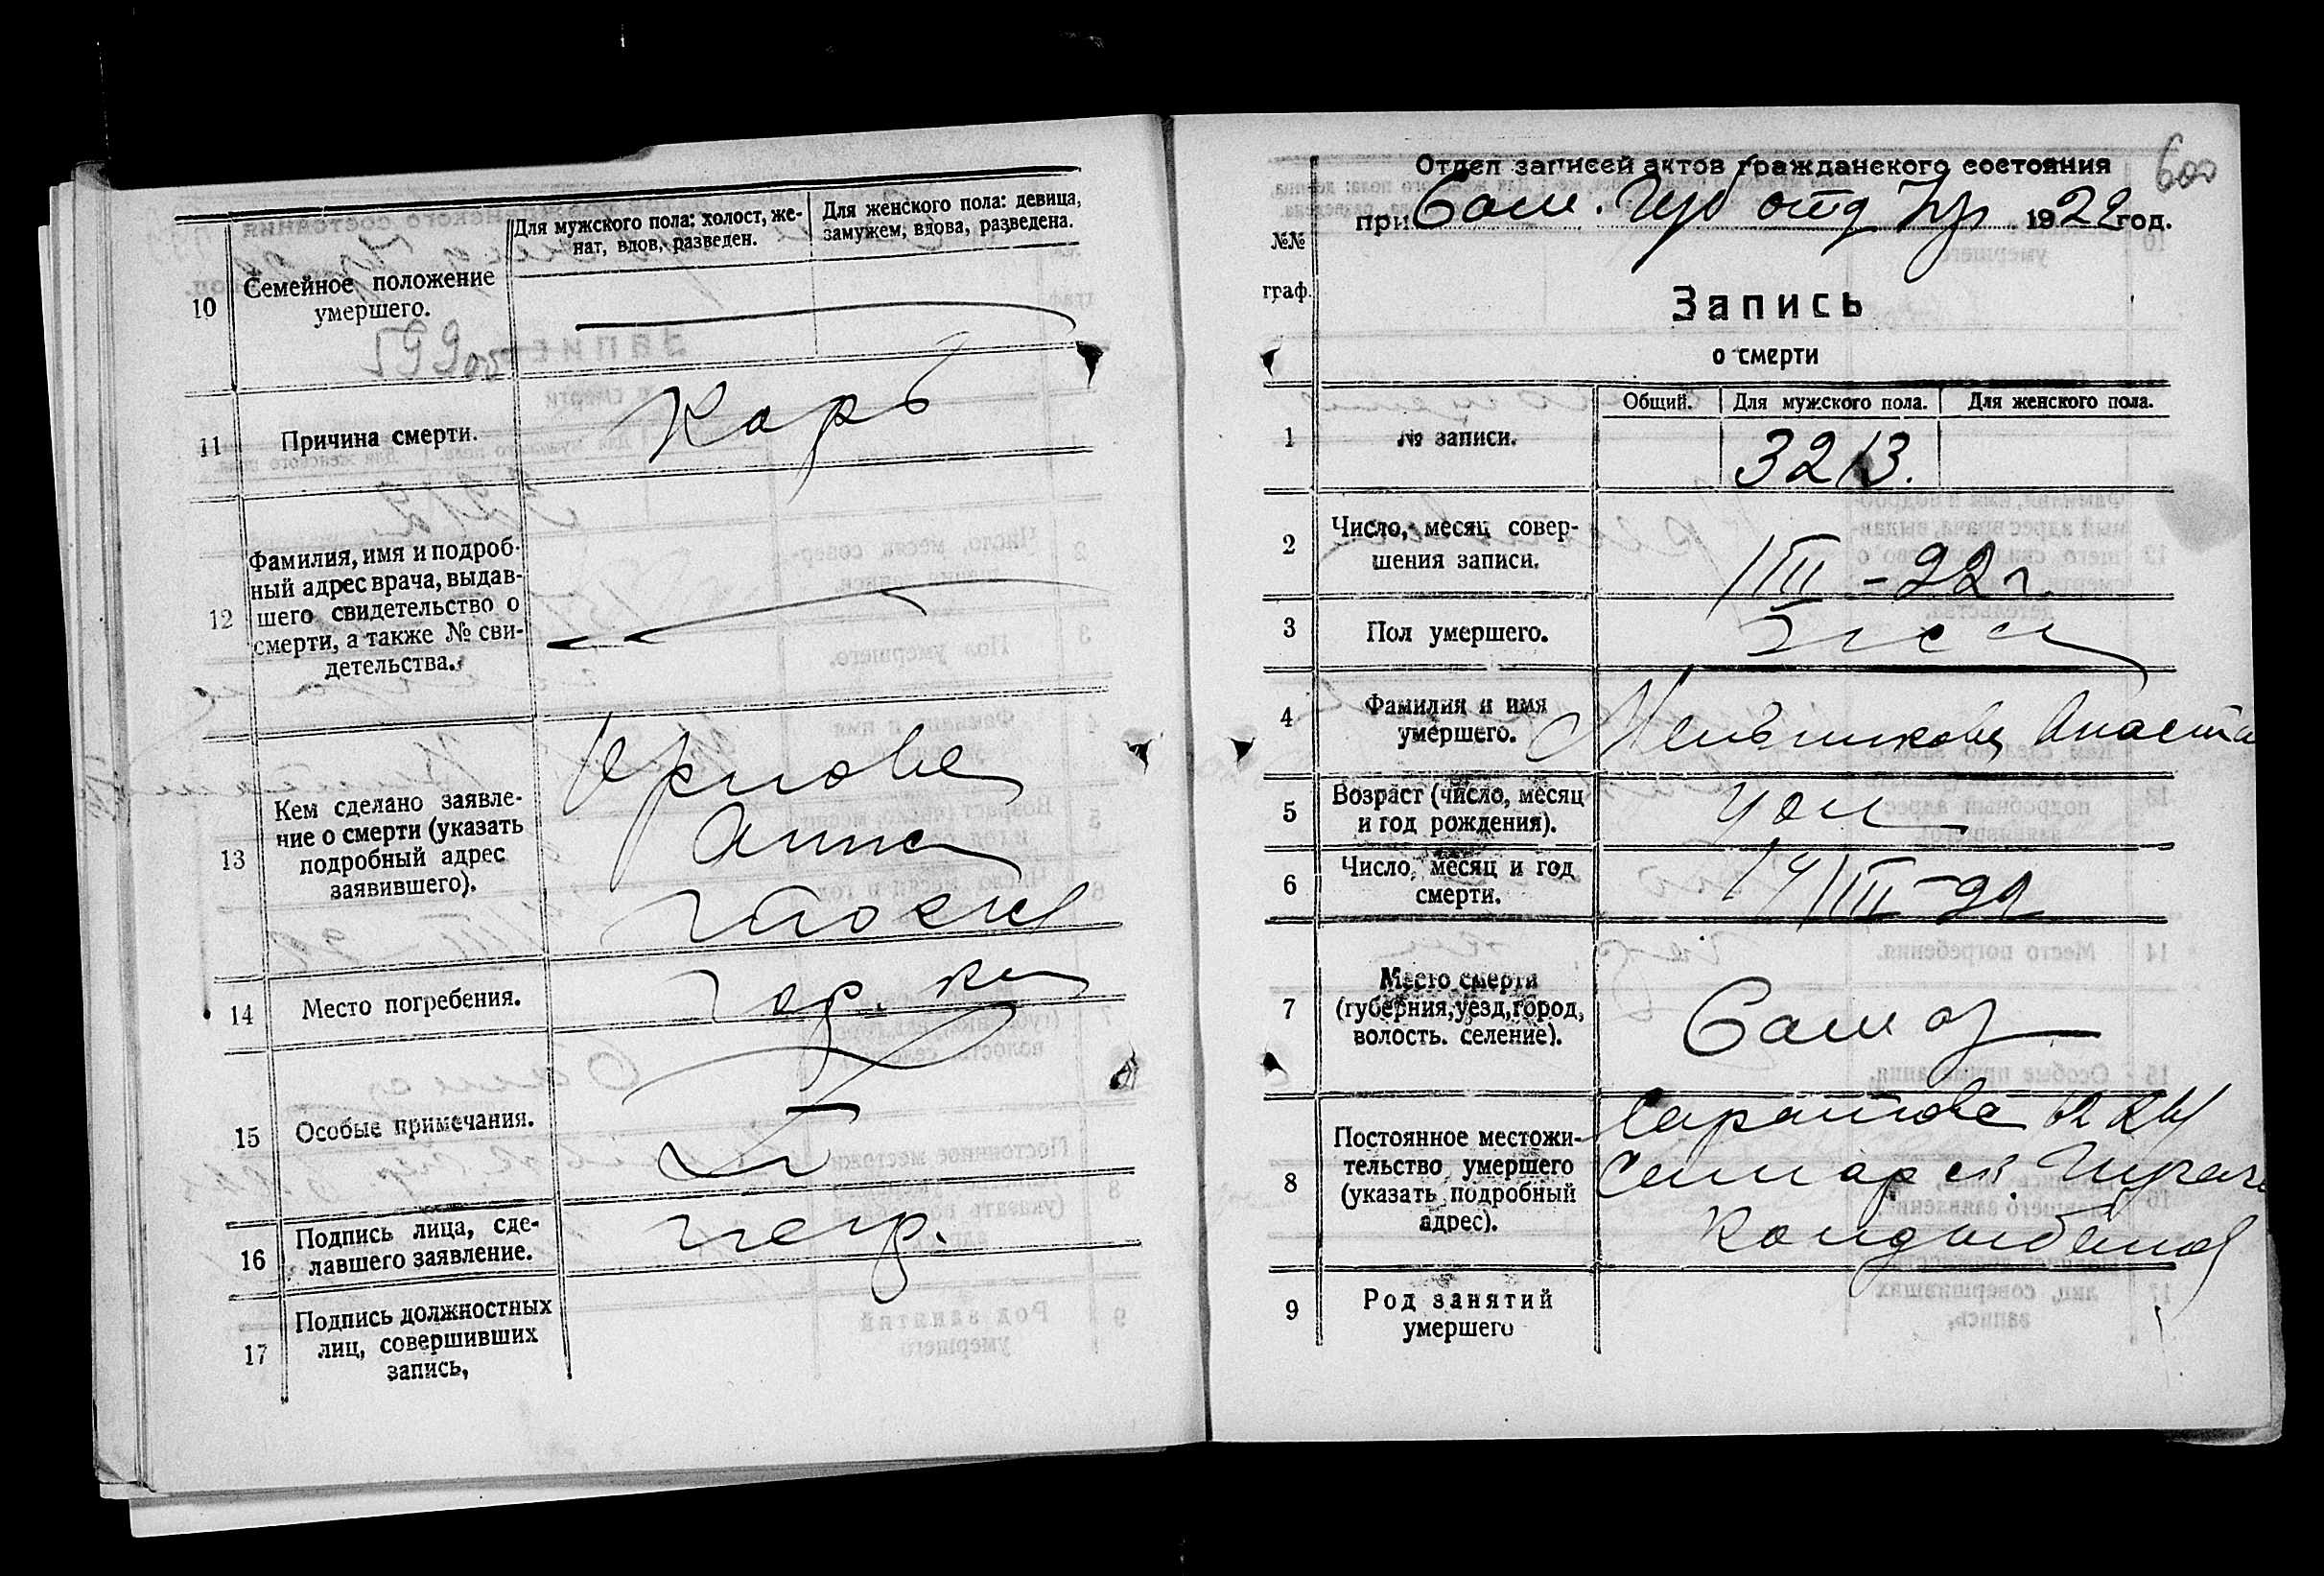 10
Семейное положение
умершего.
Для мужского пола: холост, же-
нат, вдов, разведен.
Для женского пола: девица,
замужем, вдова, разведена.
599об
11
Причина смерти.
Корь
12
Фамилия, имя и подроб-
ный адрес врача, выдав-
шего свидетельство о
смерти, а также № сви-
детельства.
13
Кем сделано заявле-
ние о смерти (указать
подробный адрес
заявившего).
Орлова
Анна
14
Место погребения.
гор. кл
15
Особые примечания.
16
Подпись лица, сде-
лавшего заявление.
негр.
17
Подпись должностных
лиц, совершивших
запись,
600
Отдел записей актов гражданского состояния
при Сам. Губ отд Упр. 1922 год.
№№
граф.
Запись
о смерти
1
№ записи.
Общий.
Для мужского пола.
Для женского пола.
3213.
2
Число, месяц совер-
шения записи.
III-22 г.
3
Пол умершего.
жен
4
Фамилия и имя
умершего.
Мельникова Анаста
5
Возраст (число, месяц
и год рождения).
6
Число, месяц и год
смерти.
III-22
7
Место смерти
(губерния, уезд, город,
волость. селение).
Самар
8
Постоянное местожи-
тельство умершего
(указать подробный
адрес).
9
Род занятий
умершего